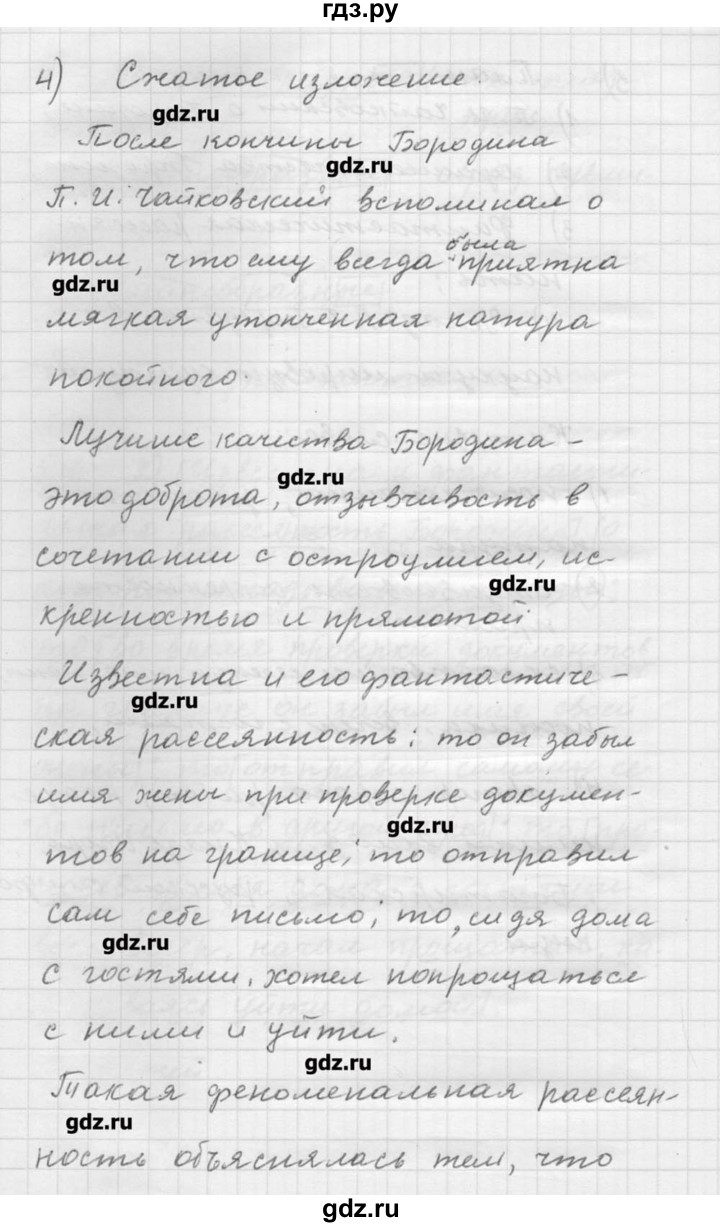 гдз.ру
4) Сжатое изложение.
gdz.ru
После кончины Бородина
gdz.ru
П. И. Чайковский вспоминал о
была
том, что ему всегда приятна
gdz.ru
мягкая утонченная натура
покойного.
Лучшие качества Бородина –
gdz.ru
это доброта, отзывчивость в
сочетании с остроумием, ис-
gdz.ru
кренностью и прямотой
Известна и его фантастиче-
gdz.ru
ская рассеянность: то он забыл
имя жены при проверке докумен-
gdz.ru
тов на границе; то отправил
сам себе письмо; то, сидя дома
gdz.ru
с гостями, хотел попрощаться
с ними и уйти.
gdz.ru
Такая феноменальная рассеян-
gdz.ru
ность объяснялась тем, что
gdz.ru